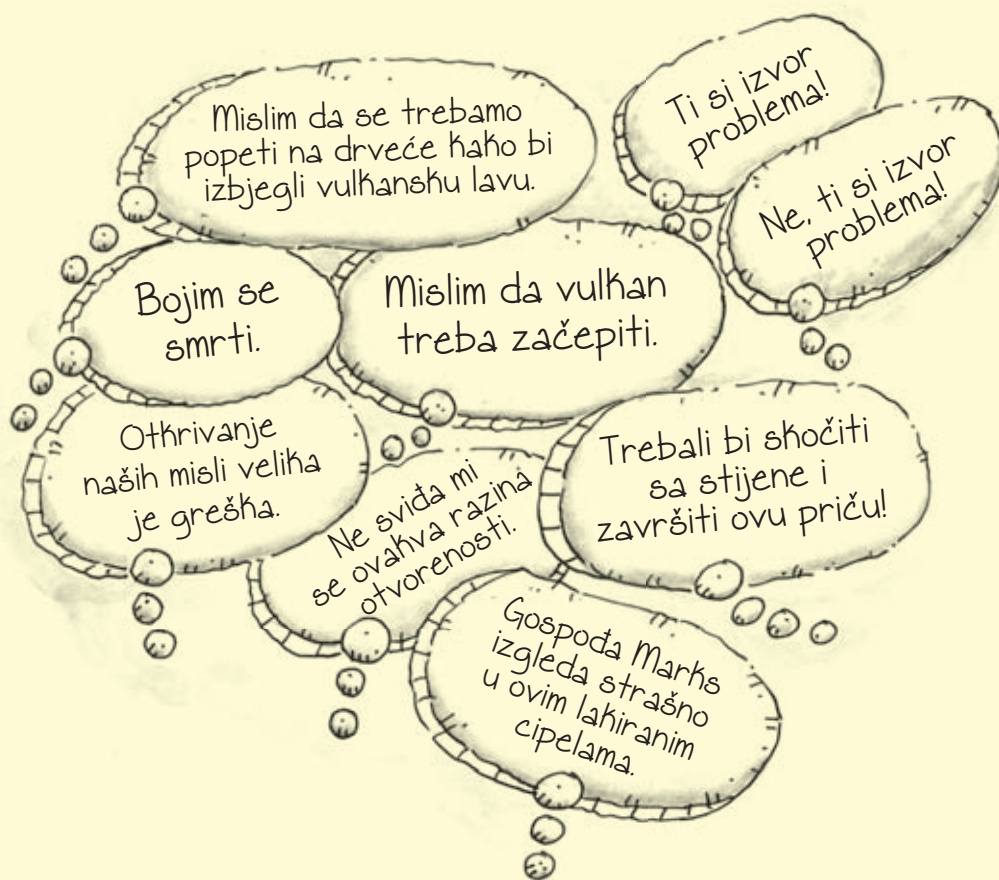 Mislim da se trebamo
popeti na drveće kako bi
izbjegli vulkansku lavu.
Ti si izvor
problema!
Ne, ti si izvor
problema!
Bojim se
smrti.
Mislim da vulkan
treba začepiti.
Otkrivanje
naših misli velika
je greška.
Ne sviđa mi
se ovakva razina
otvorenosti.
Trebali bi skočiti
sa stijene i
završiti ovu priču!
Gospođa Marks
izgleda strašno
u ovim lakiranim
cipelama.